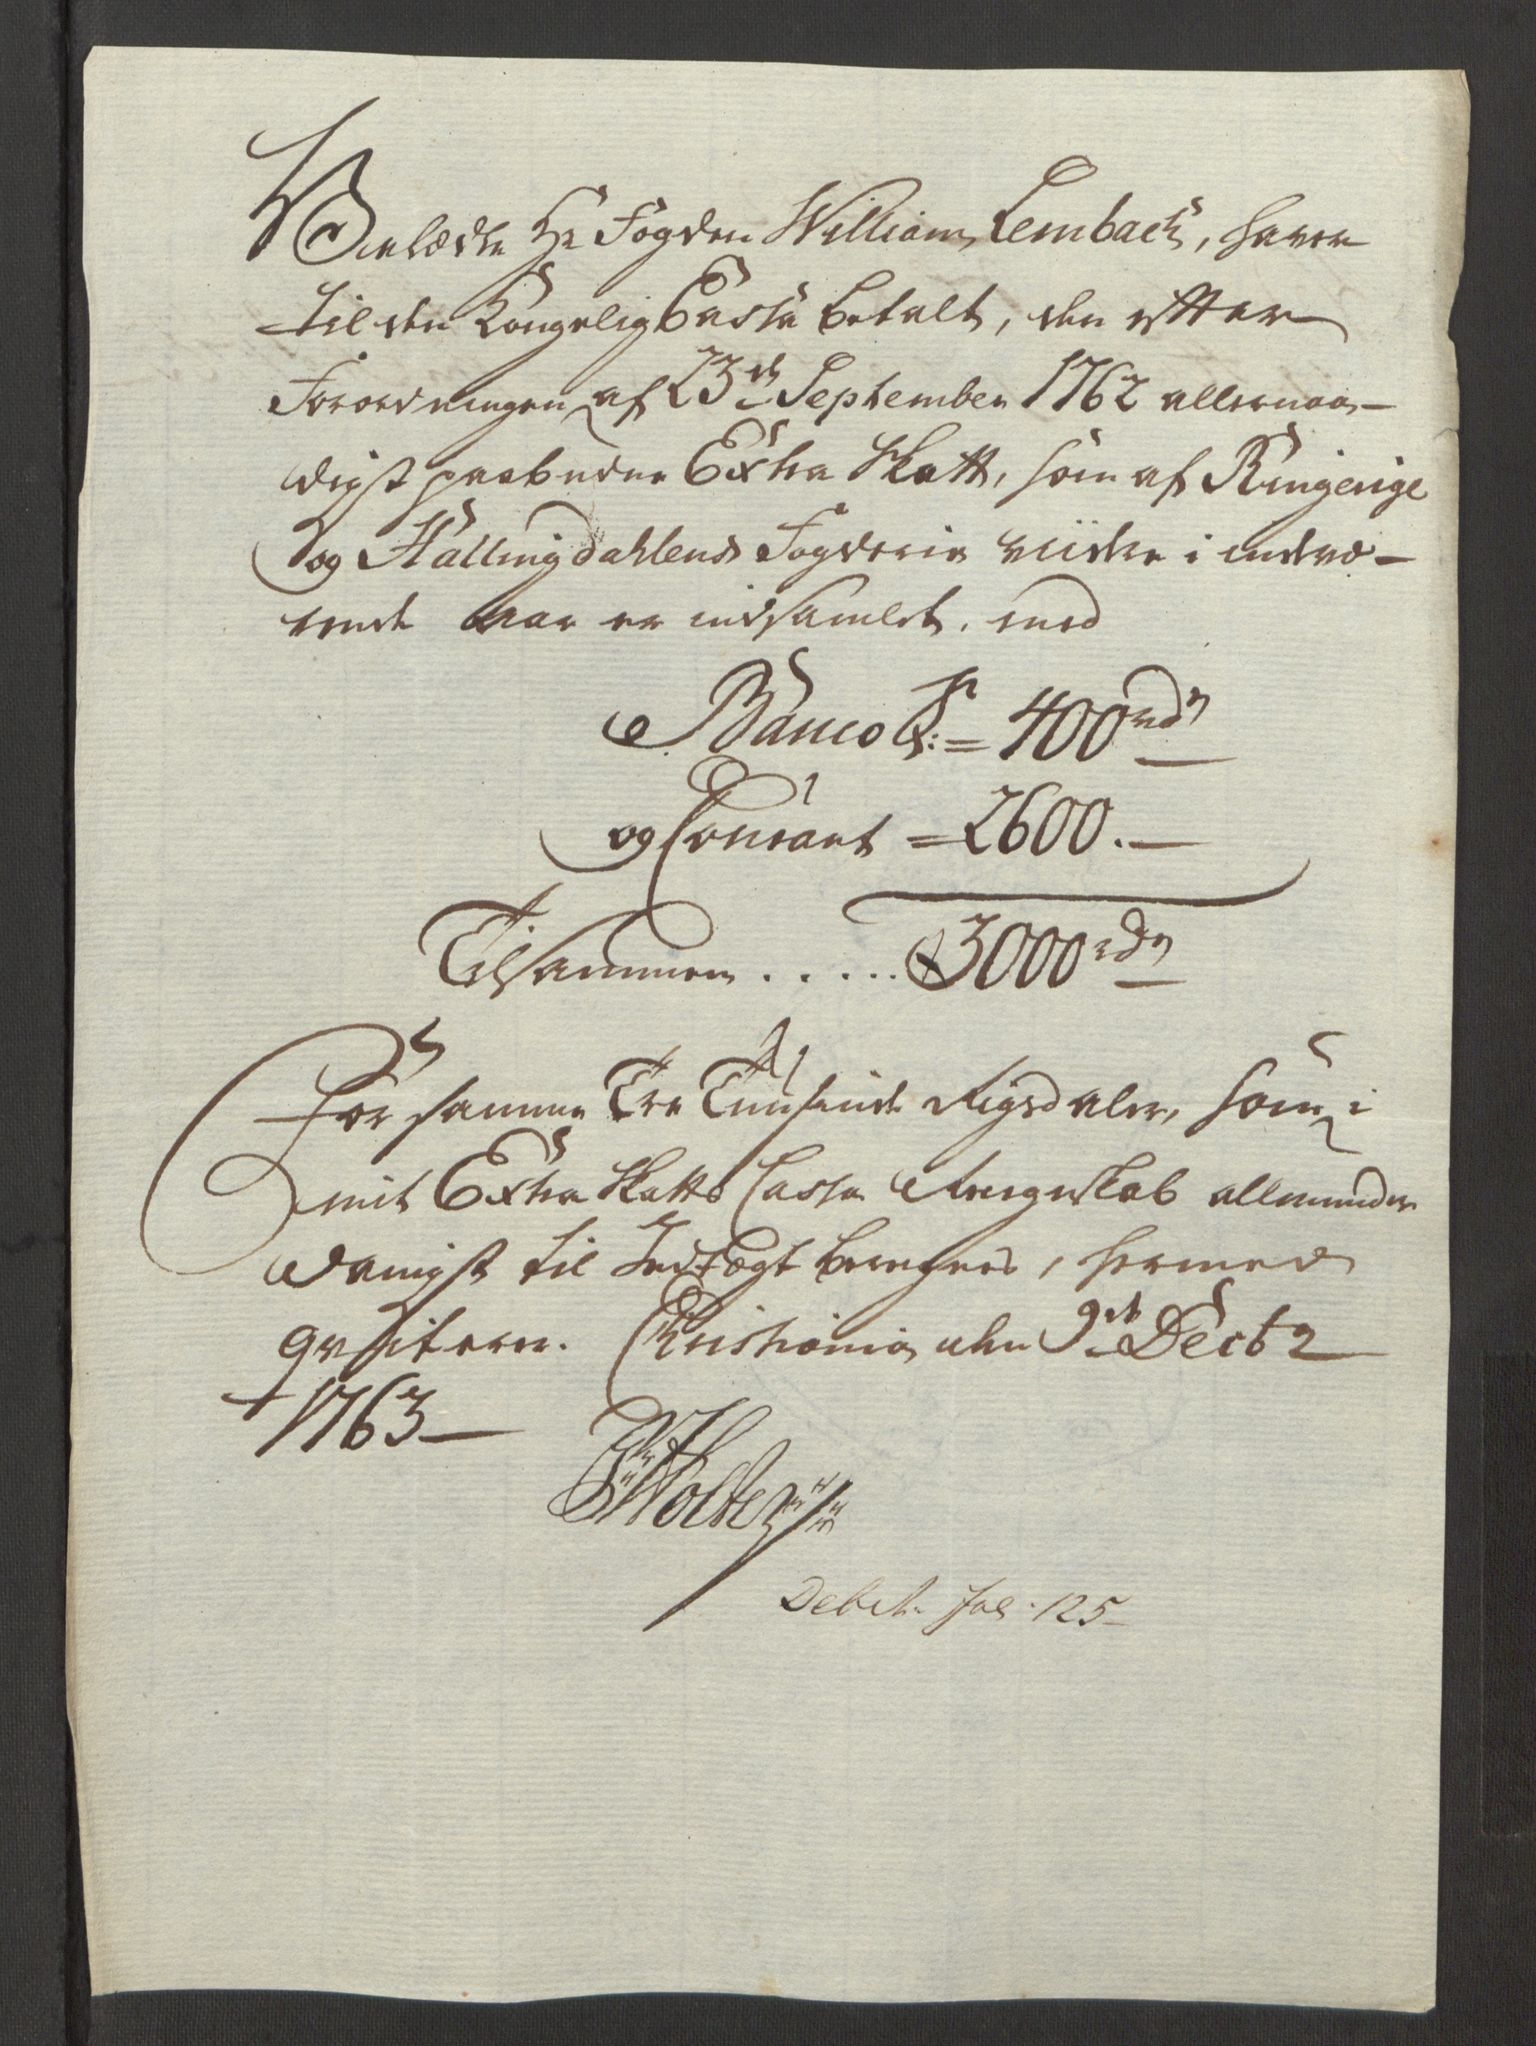 Velædle Hr Fogden William Lembach, haver
til den Kongelig Cassa betalt, den effter
Forordningen af 23de September 1762 allernaa-
digst paabudne Extra Skatt, som af Ringerige
og Hallingdahlens Fogderie viidere i indevæ-
rende Aar er indsamlet, med
Banco S: = 400 rdr
og Courant = 2600.—
Tilsammen ..... 3000 rdr
For samme Tre Tuusinde Rigsdaler, som i
mit Extra Skatts Cassa Reigenskab allerunder
danigst til Indtægt beregnes, hermed
qvitterer. Christiania den 9de Decbr
1763—
Holter
Debet. fol. 125—